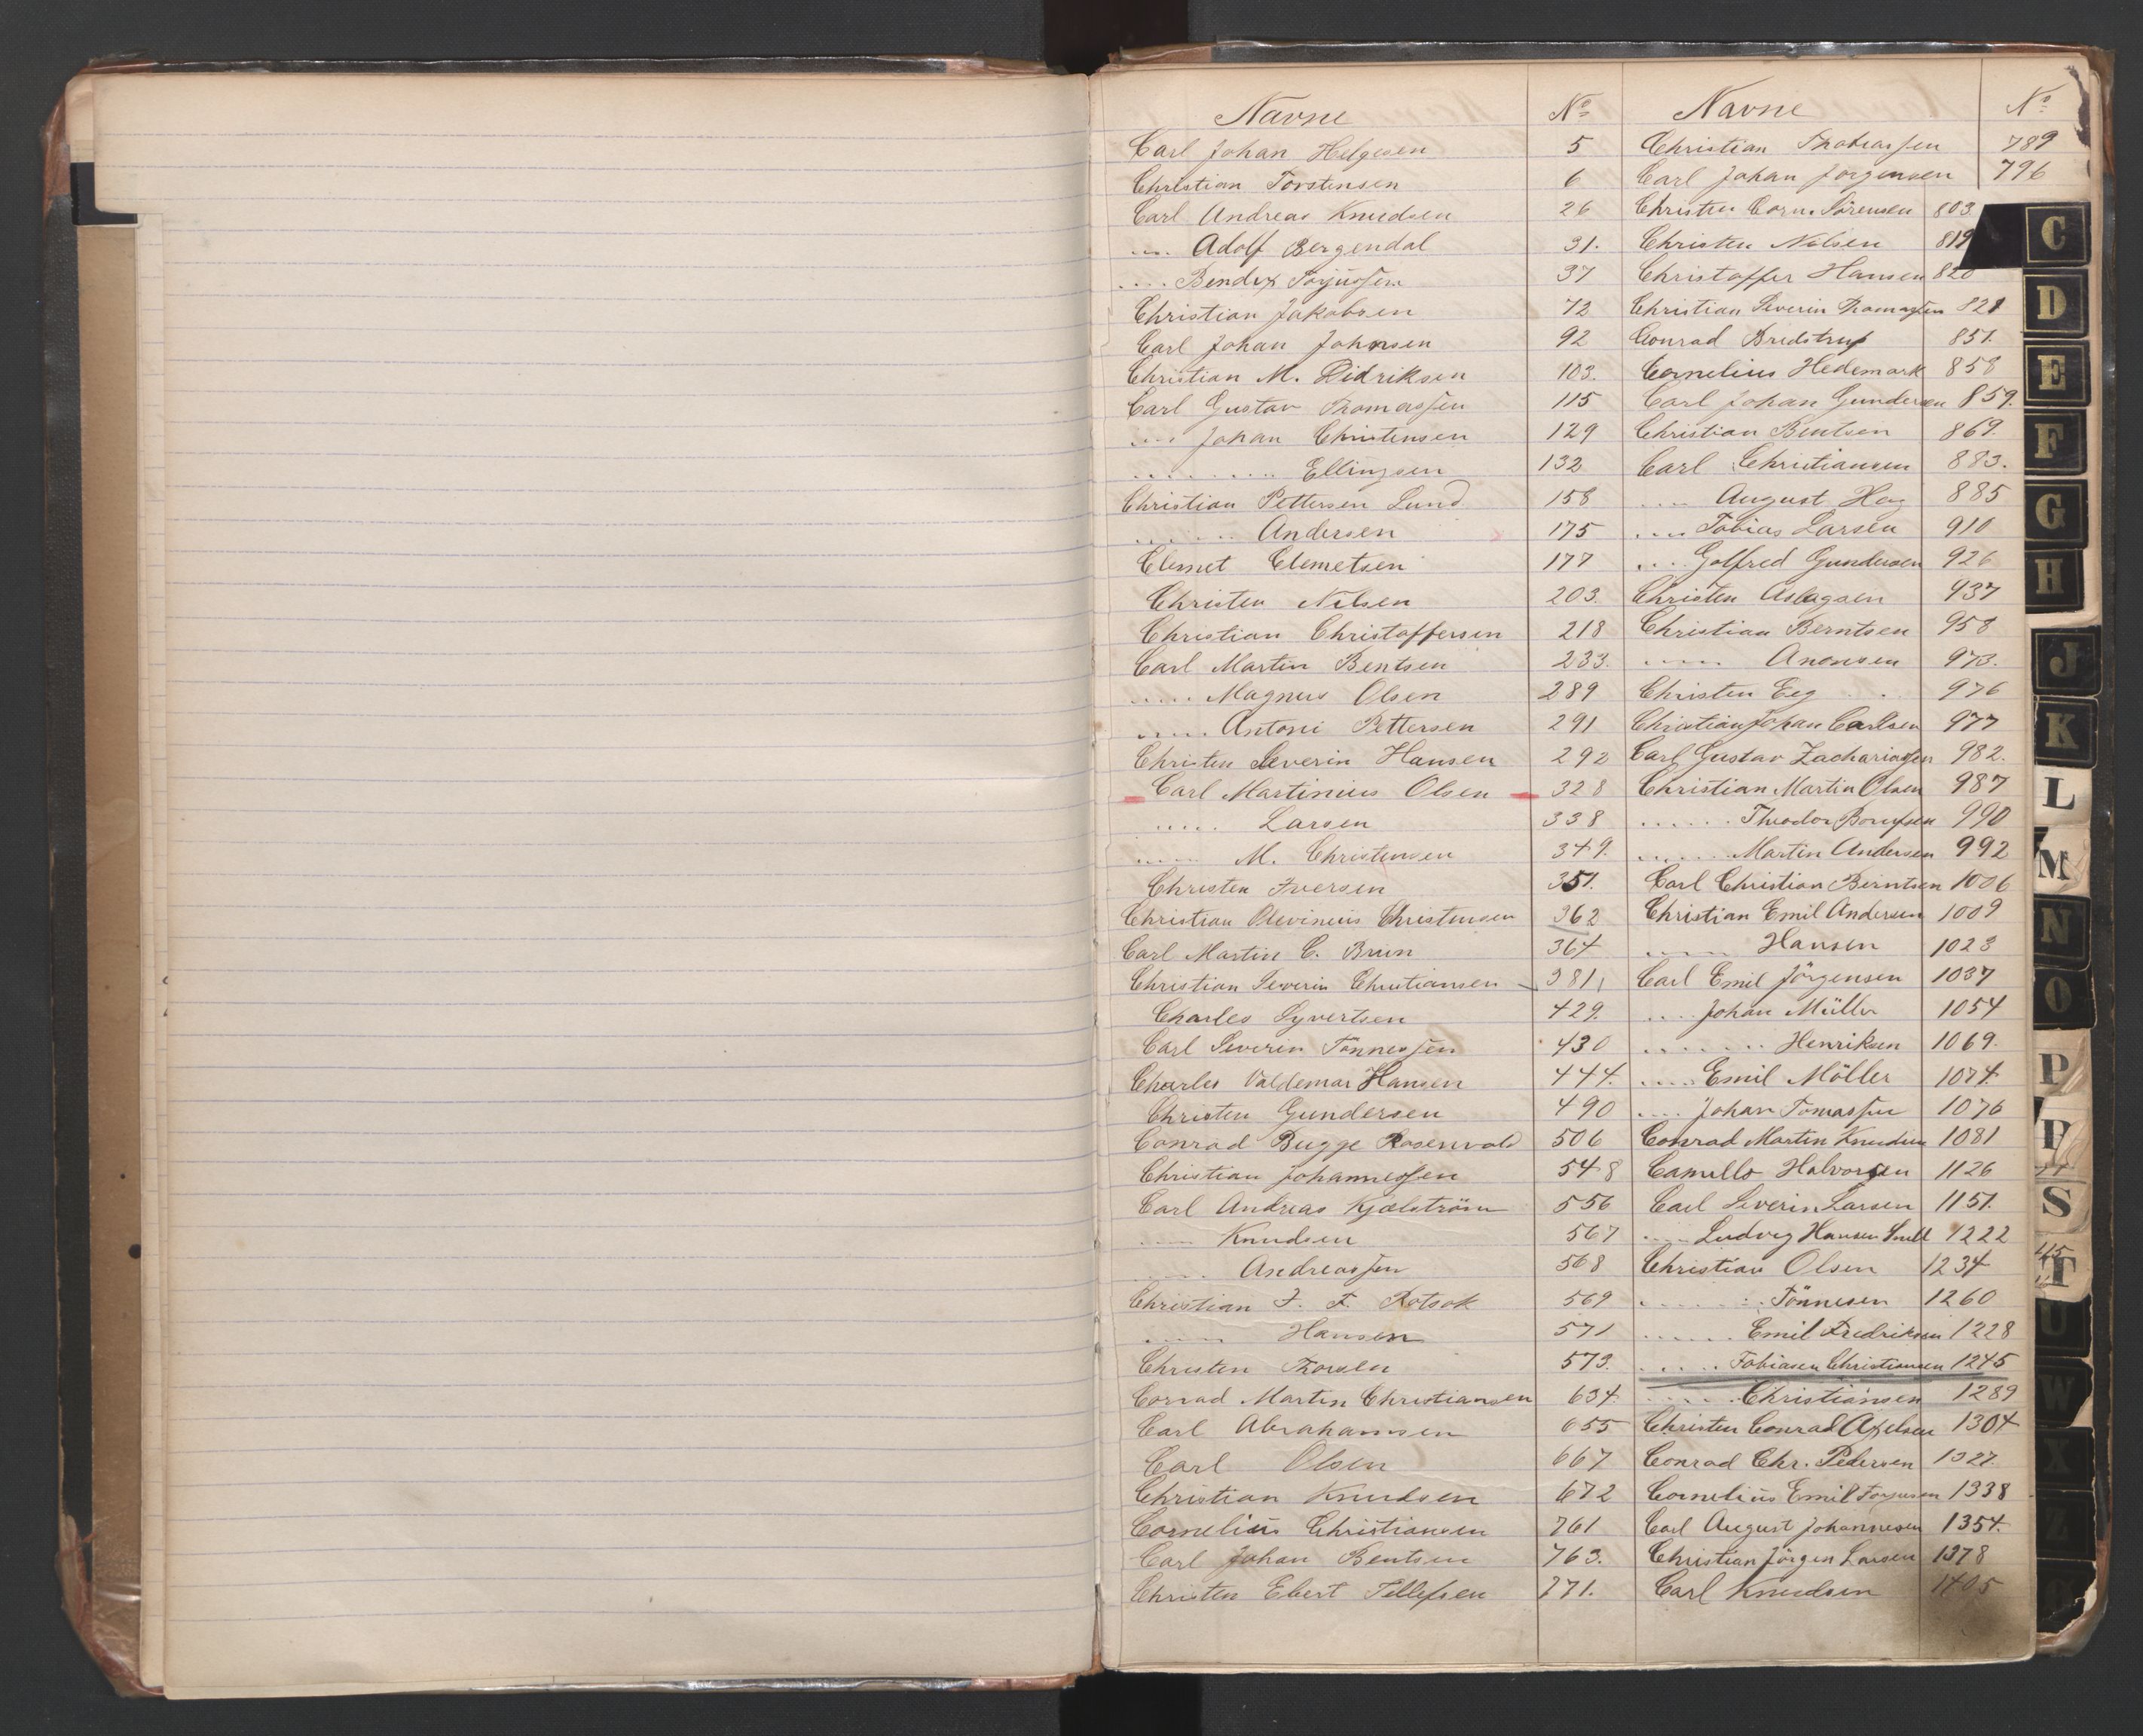 Navne № Navne №
Carl Johan Helgesen 5
Christian Torstensen 6
Carl Andreas Knudsen 26
.... Adolf Bergendal 31.
.... Bendix Torjussen 37
Christian Jakobsen 72
Carl Johan Johnsen 92
Christian M. Didriksen 103.
Carl Gustav Thomassen 115
.... Johan Christensen 129
........ Ellingsen 132
Christian Pettersen Lund 158
...... Andersen 175
Clemet Clemetsen 177
Christen Nilsen 203.
Christian Christoffersen 218
Carl Martin Bentsen 233.
.... Magnus Olsen 289
.... Antoni Pettersen 291
Christen Severin Hansen 292
Carl Martinius Olsen 328
..... Larsen 338
..... M. Christensen 349.
Christen Iversen 351.
Christian Olevinius Christensen 362
Carl Martin C. Brun 364
Christian Severin Christiansen 381
Charles Syvertsen 429.
Carl Severin Tönnessen 430
Charles Valdemar Hansen 444.
Christen Gundersen 490
Conrad Bugge Rosenvold 506
Christian Johannessen 548
Carl Andreas Kjælström 556
.... Knudsen 567
..... Andreassen 568
Christian F. F. Rotsok 569
..... Hansen 571
Christen Thorsen 573.
Conrad Martin Christiansen 634.
Carl Abrahamsen 655
Carl Olsen 667
Christian Knudsen 672
Cornelius Christiansen 761
Carl Johan Bentsen 763.
Christen Ebert Tellefsen 771.
Christian Thobiassen 789
Carl Johan Jörgensen 796
Christen Corn. Sörensen 803.
Christen Nilsen 819
Christoffer Hansen 820
Christian Severin Thomassen 821
Conrad Bredstrup 851.
Cornelius Hedemark 858
Carl Johan Gundersen 859.
Christian Bentsen 869.
Carl Christiansen 883.
.... August Hog 885
.... Tobias Larsen 910
.... Golfred Gundersen 926
Christen Aslagsen 937
Christian Berntsen 958
..... Anonsen 973.
Christen Eeg 976
Christian Johan Carlsen 977
Carl Gustav Zachariassen 982.
Christian Martin Olsen 987
...... Theodor 990
...... Martin Andersen 992
Carl Christian Berntsen 1006
Christian Emil Andersen 1009
..... Hansen 1023
Carl Emil Jörgensen 1037
.... Johan Müller 1054
....... Henriksen 1069.
.... Emil Möller 1074.
.... Johan Tomassen 1076
Conrad Martin Knudsen 1081
Camillo Halvorsen 1126
Carl Severin Larsen 1151.
.... Ludvig Hansen Snell 1222
Christian Olsen 1234
...... Tönnesen 1260
...... Emil Fredriksen 1228
..... Tobiasen Christiansen 1245
..... Christiansen 1289
Christen Conrad Axelsen 1304
Conrad Chr. Pedersen 1327.
Cornelius Emil Torjusen 1338
Carl August Johannesen 1354.
Christian Jörgen Larsen 1378
Carl Knudsen 1405
C
D
E
F
G
H
J
K
L
M
N
O
P
S
T
U
W
X
Z